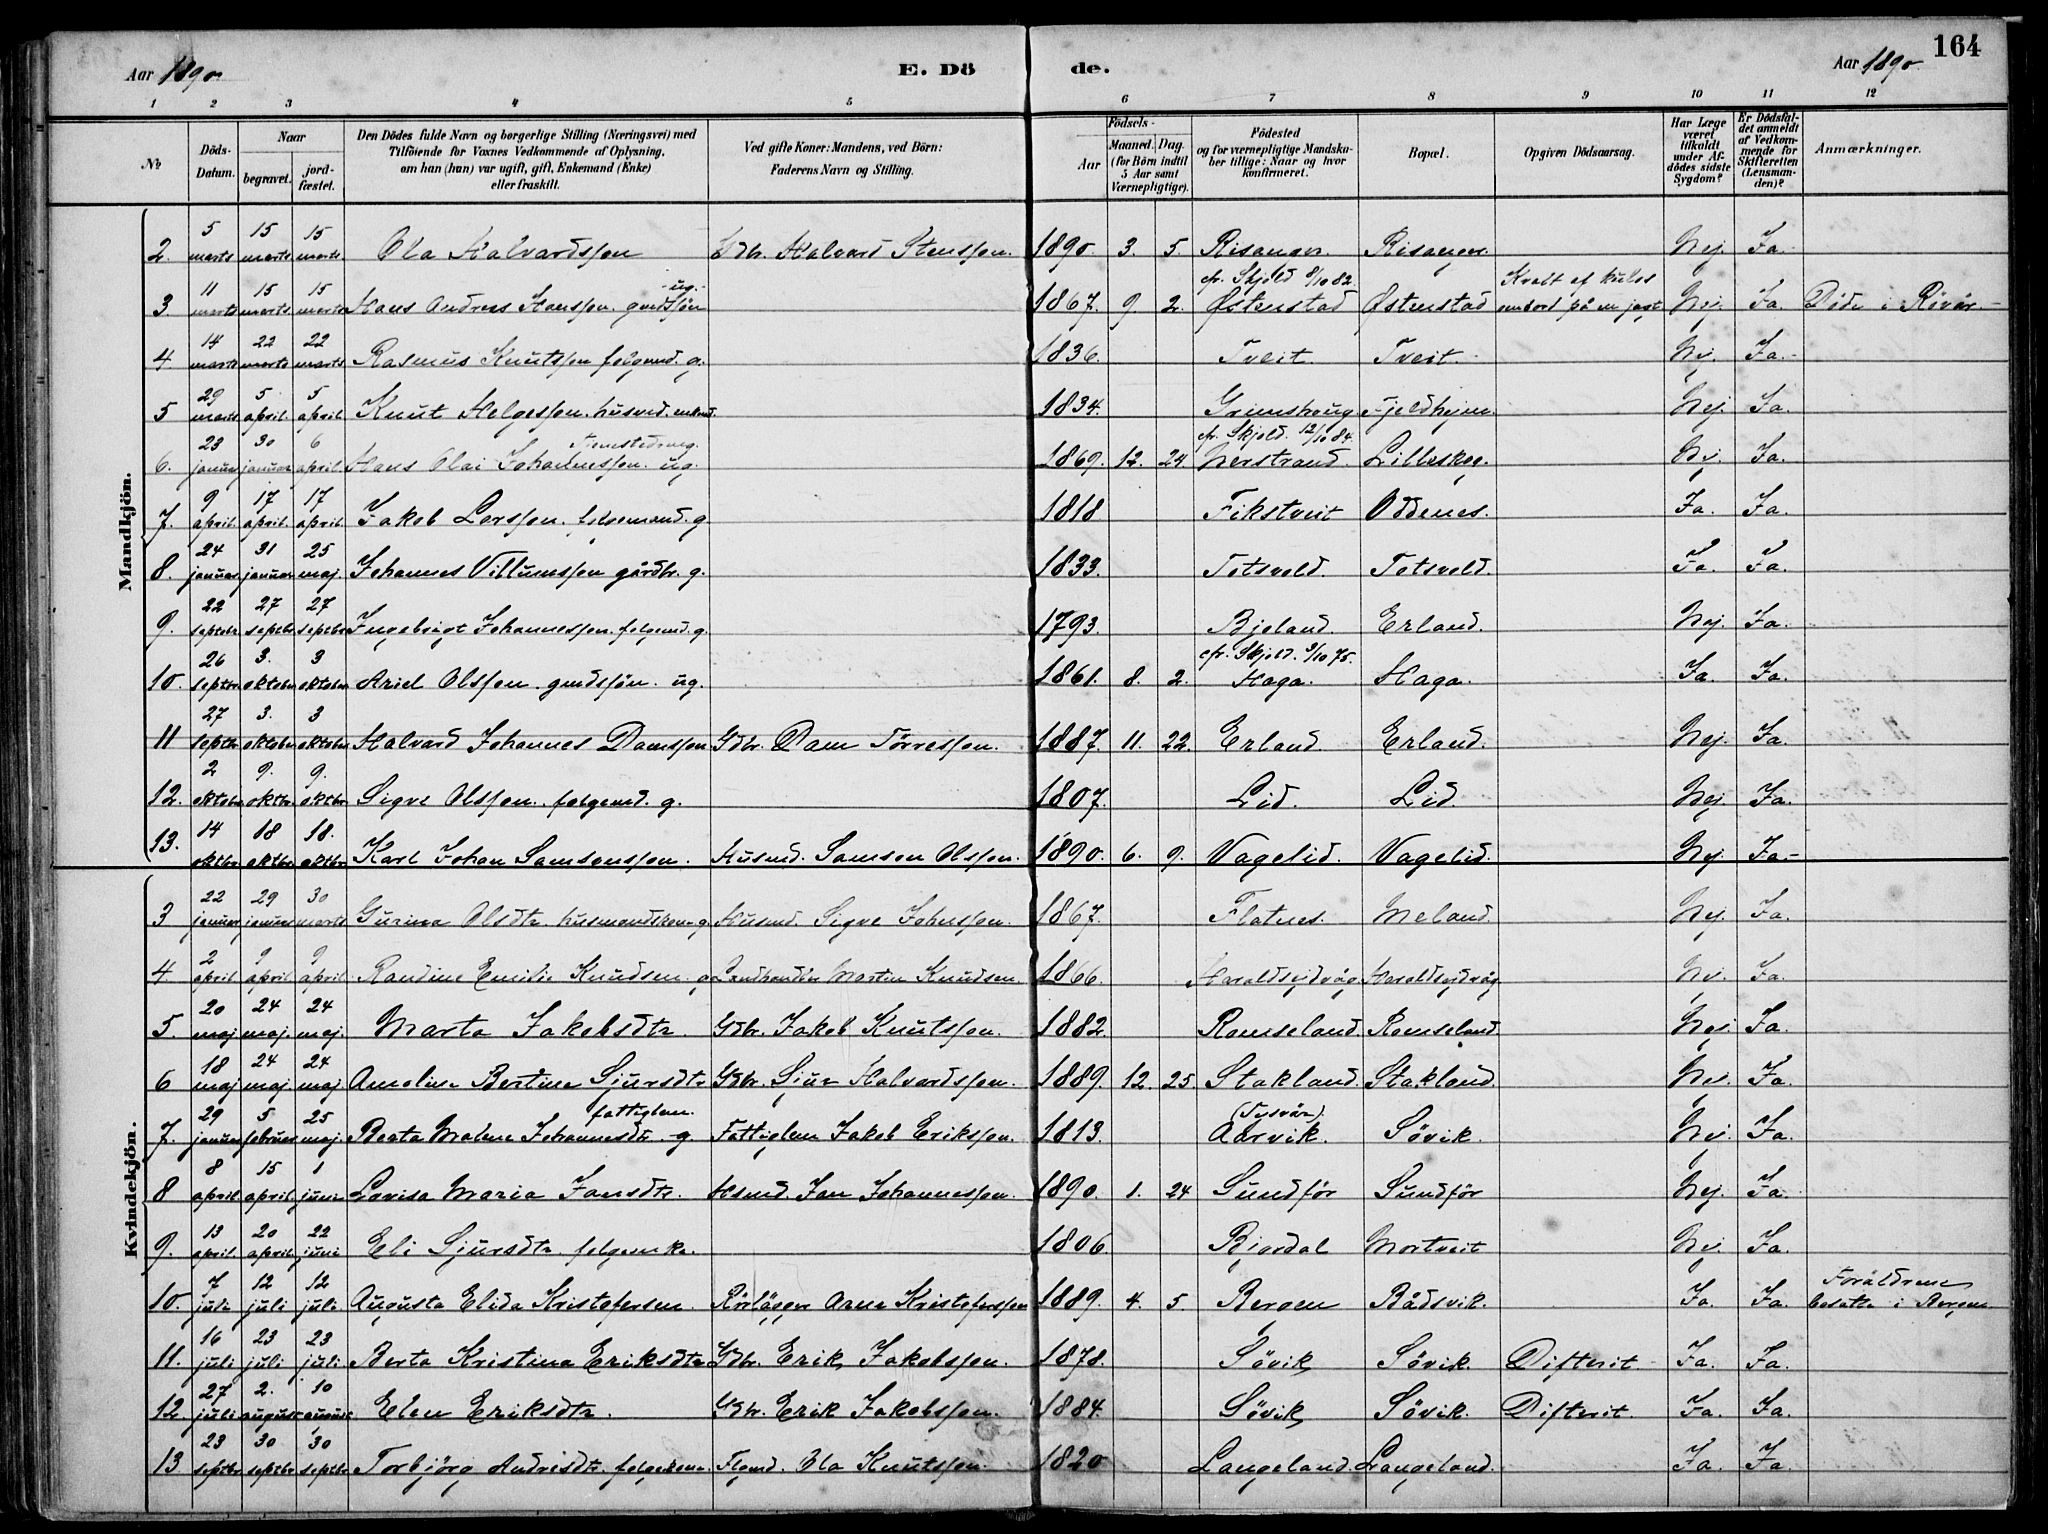 Aar 1890.
E. Döde.
Aar 1890.
164
1 2 3 4 5 6 7 8 9 10 11 12
№
Döds-Datum.
Naar
begravet.
jordfæstet.
Den Dödes fulde Navn og borgerlige Stilling (Næringsvei) med Tilföiende for Voxnes Vedkommende af Oplysning, om han (hun) var ugift, gift, Enkemand (Enke) eller fraskilt.
Ved gifte Koner: Mandens, ved Börn: Faderens Navn og Stilling.
Födsels-
Aar
Maaned. Dag.
(for Börn indtil 5 Aar samt Værnepligtige).
Födested og for værnepligtige Mandskaber tillige: Naar og hvor konfirmeret.
Bopæl.
Opgiven Dödsaarsag.
Har Læge været tilkaldt under Afdödes sidste Sygdom?
Er Dödsfaldet anmeldt af Vedkommende for Skifteretten (Lensmanden)?
Anmærkninger.
Mandkjön.
2. 5 marts 15 marts 15 marts Ola Halvardsson Gdbr. Halvard Stensson. 1890. 3. 5. Risanger. Risanger. Nej. Ja.
3. 11 marts 15 marts 15 marts Hans Andreas Hansson. gmdssön ug. 1867. 9. 2. cfr. Skjold 8/10 82. Østenstad Østenstad Kvalt af kulos ombord på en jagt Nej. Ja. Döde i Rövär.
4 14 marts 22 marts 22 marts Rasmus Knutsson folgemd. g. 1836. Tveit. Tveit. Nej. Ja.
5 29 marts 5 april. 5 april. Knut Helgesson. husmd. enkmd. 1834. Grimshoug. Fjeldhejm. Nej. Ja.
6. 23 januar 30 januar 6 april Hans Olai Johannesson. ug. 1869. 12. 24 cfr. Skjold. 12/10 84. Nerstrand. Lilleskog. Nej. Ja.
7. 9 april. 17 april. 17 april. Jakob Larsson. folgemand. g 1818 Fikstveit Oddenes. Ja. Ja.
8. 24 januar 31 januar 25 maj. Johannes Villumsson gårdbr. g. 1833. Totsvold. Totsvold. Ja. Ja.
9. 22 septbr. 27 septbr 27 septbr Ingebrigt Johannesson. folgemd. g. 1793. Bjoland. Erland. Nej. Ja.
10. 26 septbr 3. oktober 3 oktober Ariel Olsson. gmdssön. ug. 1861. 8. 2. cfr. Skjold. 3/10 75. Haga. Haga. Ja. Ja.
11 27 septbr 3. oktober 3 oktober Halvard Johannes Damsson Gdbr. Dam Törresson. 1887. 11. 22. Erland. Erland. Nej. Ja.
12. 2 oktober 9. oktbr. 9. oktbr Sigve Olsson. folgemd. g. 1807. Lid. Lid. Nej. Ja.
13. 14 oktbr. 18 oktbr 18. oktbr Karl Johan Samsonsson. Husmd. Samson Olsson. 1890. 6. 9. Vagelid. Vagelid. Nej. Ja.
Kvindekjön.
3 22 januar 29 januar 30 marts Gurina Olsdtr. husmandskone g. Husmd. Sigve Johnsson. 1867. Flatnes. Meland. Nej. Ja.
4 2 april 9 april 9 april Randine Emilie Knudsen. g Landhandler Martin Knudsen. 1866. Haraldseidvåg. Haraldseidvåg Nej. Ja.
5. 20 maj 24 maj. 24 maj. Marta Jakobsdtr. Gdbr. Jakob Knutsson. 1882. Romseland. Romseland. Nej. Ja.
6 18 maj 24 maj 24 maj Amoline Bertine Sjursdtr Gdbr. Sjur Halvardsson. 1889. 12. 25. Stakland. Stakland. Nej. Ja.
7. 29 januar 5 februar 25 maj. Berta Malene Johannesdtr. g fattiglem. Fattiglem Jakob Eriksson. 1813. (Tysvär). Aarvik. Sövik. Nej. Ja.
8 8 april. 15 april 1 juni Lovisa Maria Jansdtr. Husmd. Jan Johannesson. 1890. 1. 24 Sundför Sundför Nej. Ja.
9. 13 april. 20 april. 22 juni Eli Sjursdtr folgeenke. 1806. Bjordal Mortveit Nej. Ja.
10. 7 juli 12 juli 12 juli Augusta Elida Kristofersen. Rörlägger Arne Kristoferssen 1889. 4. 5. Bergen Bådsvik. Ja. Ja. Foräldrene bosatte i Bergen.
11. 16 juli 23 juli 23 juli Berta Kristina Eriksdtr Gdbr. Erik Jakobsson. 1878. Sövik Sövik. Difterit Ja. Ja.
12. 27 juli 2. august 10 august Elen Eriksdtr. Gdbr. Erik Jakobsson. 1884. Sövik Sövik. Difterit. Ja. Ja.
13 23 septbr 30 septbr 30 septbr Torbjörg Andrisdtr. folgekone Flgmd. Ola Knutsson. 1820 Langeland. Langeland. Ja. Ja.